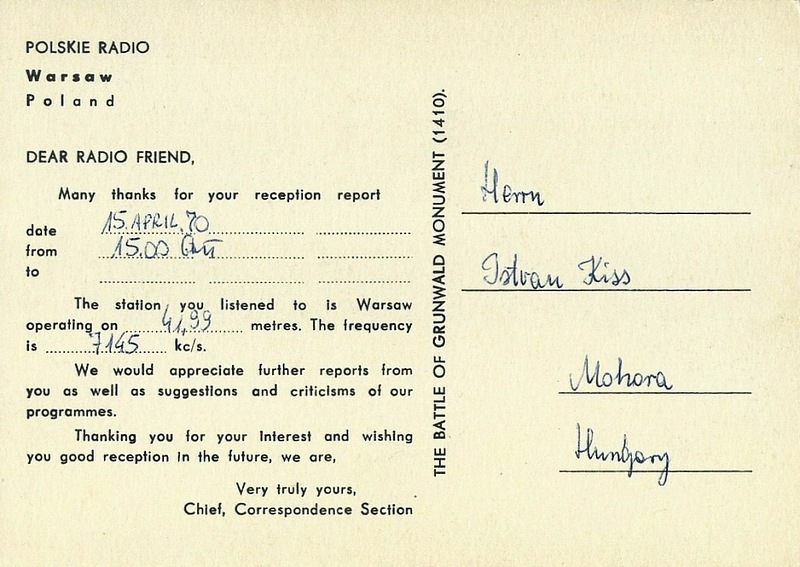 POLSKIE RADIO
Warsaw
Poland
DEAR RADIO FRIEND,
Many thanks for your reception report
date 15. APRIL. 70
from 15.00 GMT
to
The station you listened to is Warsaw
operating on 41,99 metres. The frequency
is 7145 kc/s.
We would appreciate further reports from
you as well as suggestions and criticisms of our
programmes.
Thanking you for your interest and wishing
you good reception in the future, we are,
Very truly yours,
Chief, Correspondence Section
THE BATTLE OF GRUNWALD MONUMENT (1410).
Herrn
Istvan Kiss
Mohora
Hungary